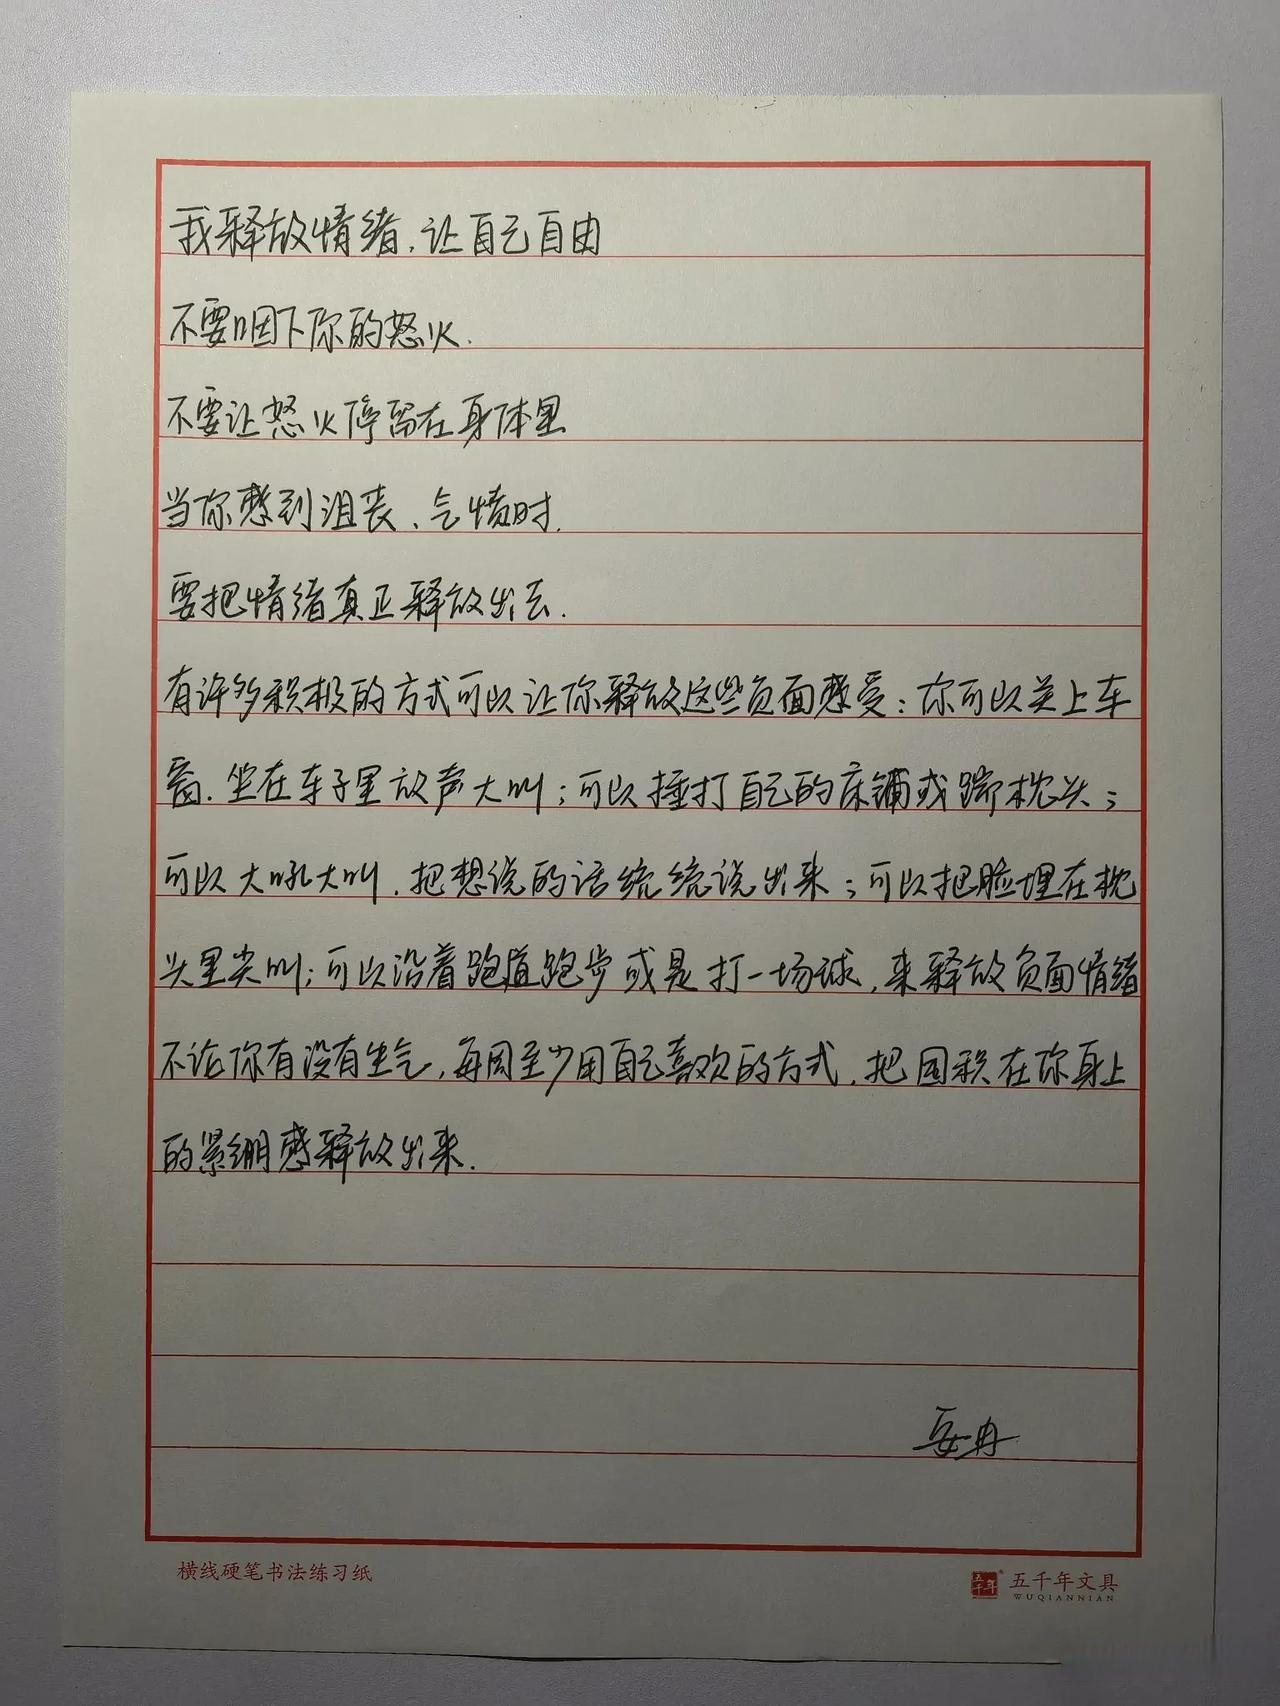 我释放情绪,让自己自由
不要咽下你的怒火.
不要让怒火停留在身体里
当你感到沮丧、气愤时.
要把情绪真正释放出去.
有许多积极的方式可以让你释放这些负面感受:你可以关上车
窗.坐在车子里放声大叫;可以捶打自己的床铺或踢枕头;
可以大吼大叫.把想说的话统统说出来;可以把脸埋在枕
头里尖叫;可以沿着跑道跑步或是打一场球,来释放负面情绪
不论你有没有生气,每周至少用自己喜欢的方式.把囤积在你身上
的紧绷感释放出来.
横线硬笔书法练习纸
五千年 五千年文具
WUQIANNIAN